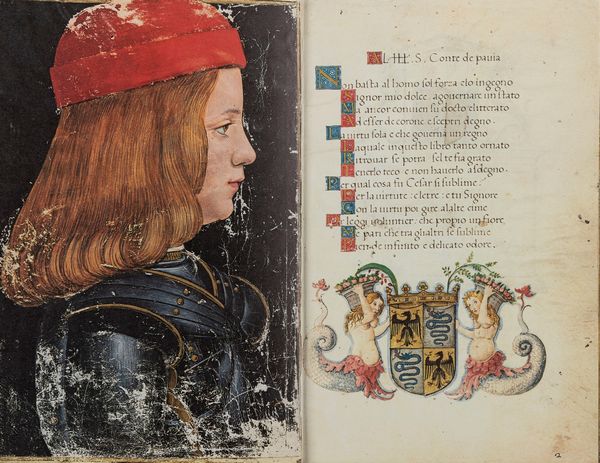 AL ILL. S. Conte de pavia
Non basta al homo sol forza elo ingegno
Signor mio dolce. agouernare un stato
Ma ancor conuien su docto elitterato
Ad esser de corone e sceptri degno.
La uirtu sola e che gouerna un regno
Laquale inquesto libro tanto ornato
Ritrouar se potra sel te fia grato
Tenerlo teco e non hauerlo asdegno.
Per qual cosa fu Cesar si sublime.
Per la uirtute: eletre: e tu Signore
Con la uirtu poi gire alalte cime
Per leggi uoluntier. che propio un fiore
Ne pari che tra glialtri se sublime
Rende infinito e delicato odore.